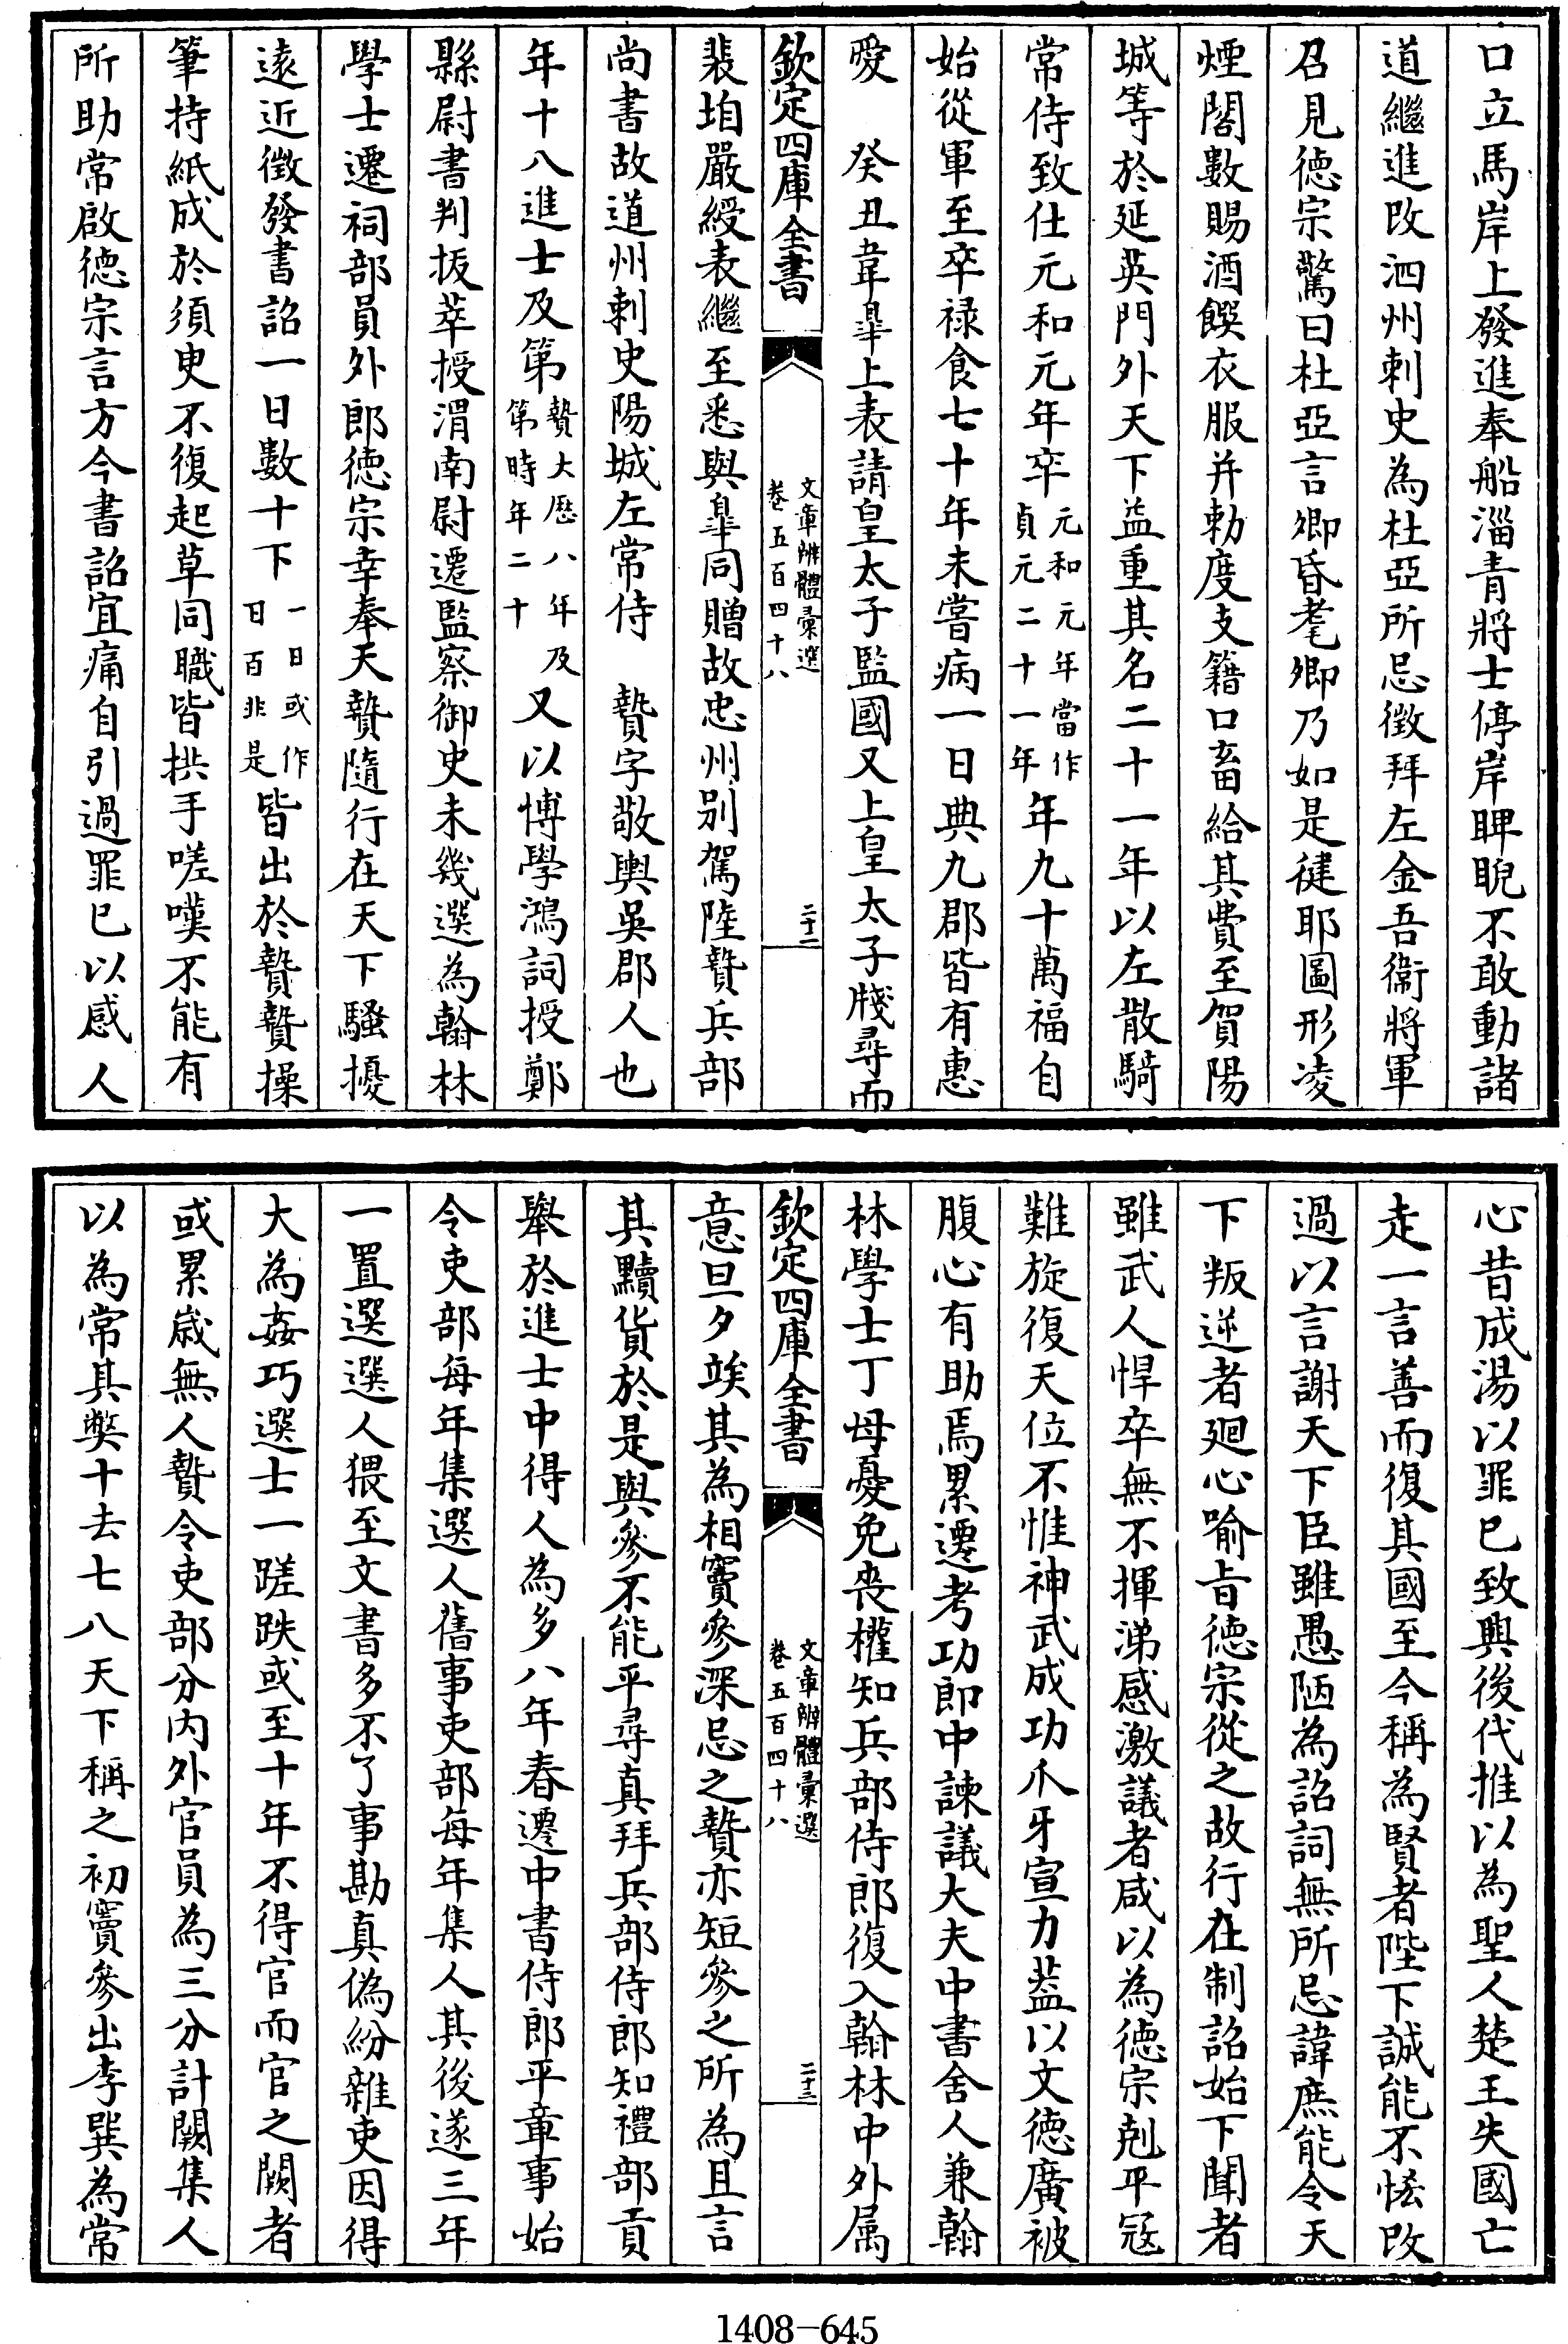 口立馬岸上發進奉船淄青將士停岸睥睨不敢動諸
道繼進改泗州刺史為杜亞所忌徴拜左金吾衞將軍
召見德宗驚曰杜亞言卿昏耄卿乃如是健耶圖形凌
煙閣數賜酒饌衣服并勅度支籍口畜給其費至賀陽
城等於延英門外天下益重其名二十一年以左散騎
常侍致仕元和元年卒元和元年當作貞元二十一年年九十萬福自
始從軍至卒禄食七十年未嘗病一日典九郡皆有惠
愛　癸丑韋臯上表請皇太子監國又上皇太子牋尋而
欽定四庫全書　文章辨體彚選卷五百四十八　二十一
裴均嚴綬表繼至悉與臯同贈故忠州别駕陸贄兵部
尚書故道州刺史陽城左常侍　贄字敬輿吳郡人也
年十八進士及第贄大厯八年及第時年二十又以博學鴻詞授鄭
縣尉書判拔萃授渭南尉遷監察御史未幾選為翰林
學士遷祠部員外郎德宗幸奉天贄隨行在天下騷擾
逺近徴發書詔一日數十下一日或作日百非是皆出於贄贄操
筆持紙成於須臾不復起草同職皆拱手嗟嘆不能有
所助常啟德宗言方今書詔宜痛自引過罪已以感人
心昔成湯以罪已致興後代推以為聖人楚王失國亡
走一言善而復其國至今稱為賢者陛下誠能不悋改
過以言謝天下臣雖愚陋為詔詞無所忌諱庶能令天
下叛逆者廻心喻㫖德宗從之故行在制詔始下聞者
雖武人悍卒無不揮涕感激議者咸以為德宗剋平冦
難旋復天位不惟神武成功爪牙宣力葢以文德廣被
腹心有助焉累遷考功郎中諫議大夫中書舍人兼翰
林學士丁母憂免喪權知兵部侍郎復入翰林中外属
欽定四庫全書　文章辨體彚選卷五百四十八　二十二
意旦夕竢其為相竇參深忌之贄亦短參之所為且言
其黷貨於是與參不能平尋真拜兵部侍郎知禮部貢
舉於進士中得人為多八年春遷中書侍郎平章事始
令吏部每年集選人舊事吏部每年集人其後遂三年
一置選選人猥至文書多不了事勘真偽紛雜吏因得
大為姦巧選士一蹉跌或至十年不得官而官之闕者
或累嵗無人贄令吏部分内外官員為三分計闕集人
以為常其獘十去七八天下稱之初竇參出李巽為常
1408-645